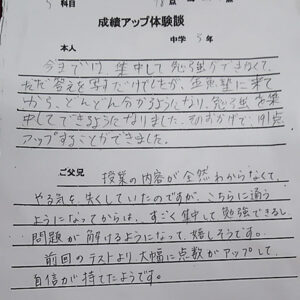 科目 点
成績アップ体験談
中学 3年
本人
今までは、集中して勉強ができなくて、
ただ答えを写すだけでしたが、塾に来て
から、どんどん分かるようになり、勉強を集
中してできるようになりました。そのおかげで、191点
アップすることができました。
ご父兄
授業の内容が全然わからなくて、
やる気を失くしていたのですが、こちらに通う
ようになってからは、すごく集中して勉強できるし、
問題が解けるようになって、嬉しそうです。
前回のテストより大幅に点数がアップして、
自信が持てたようです。